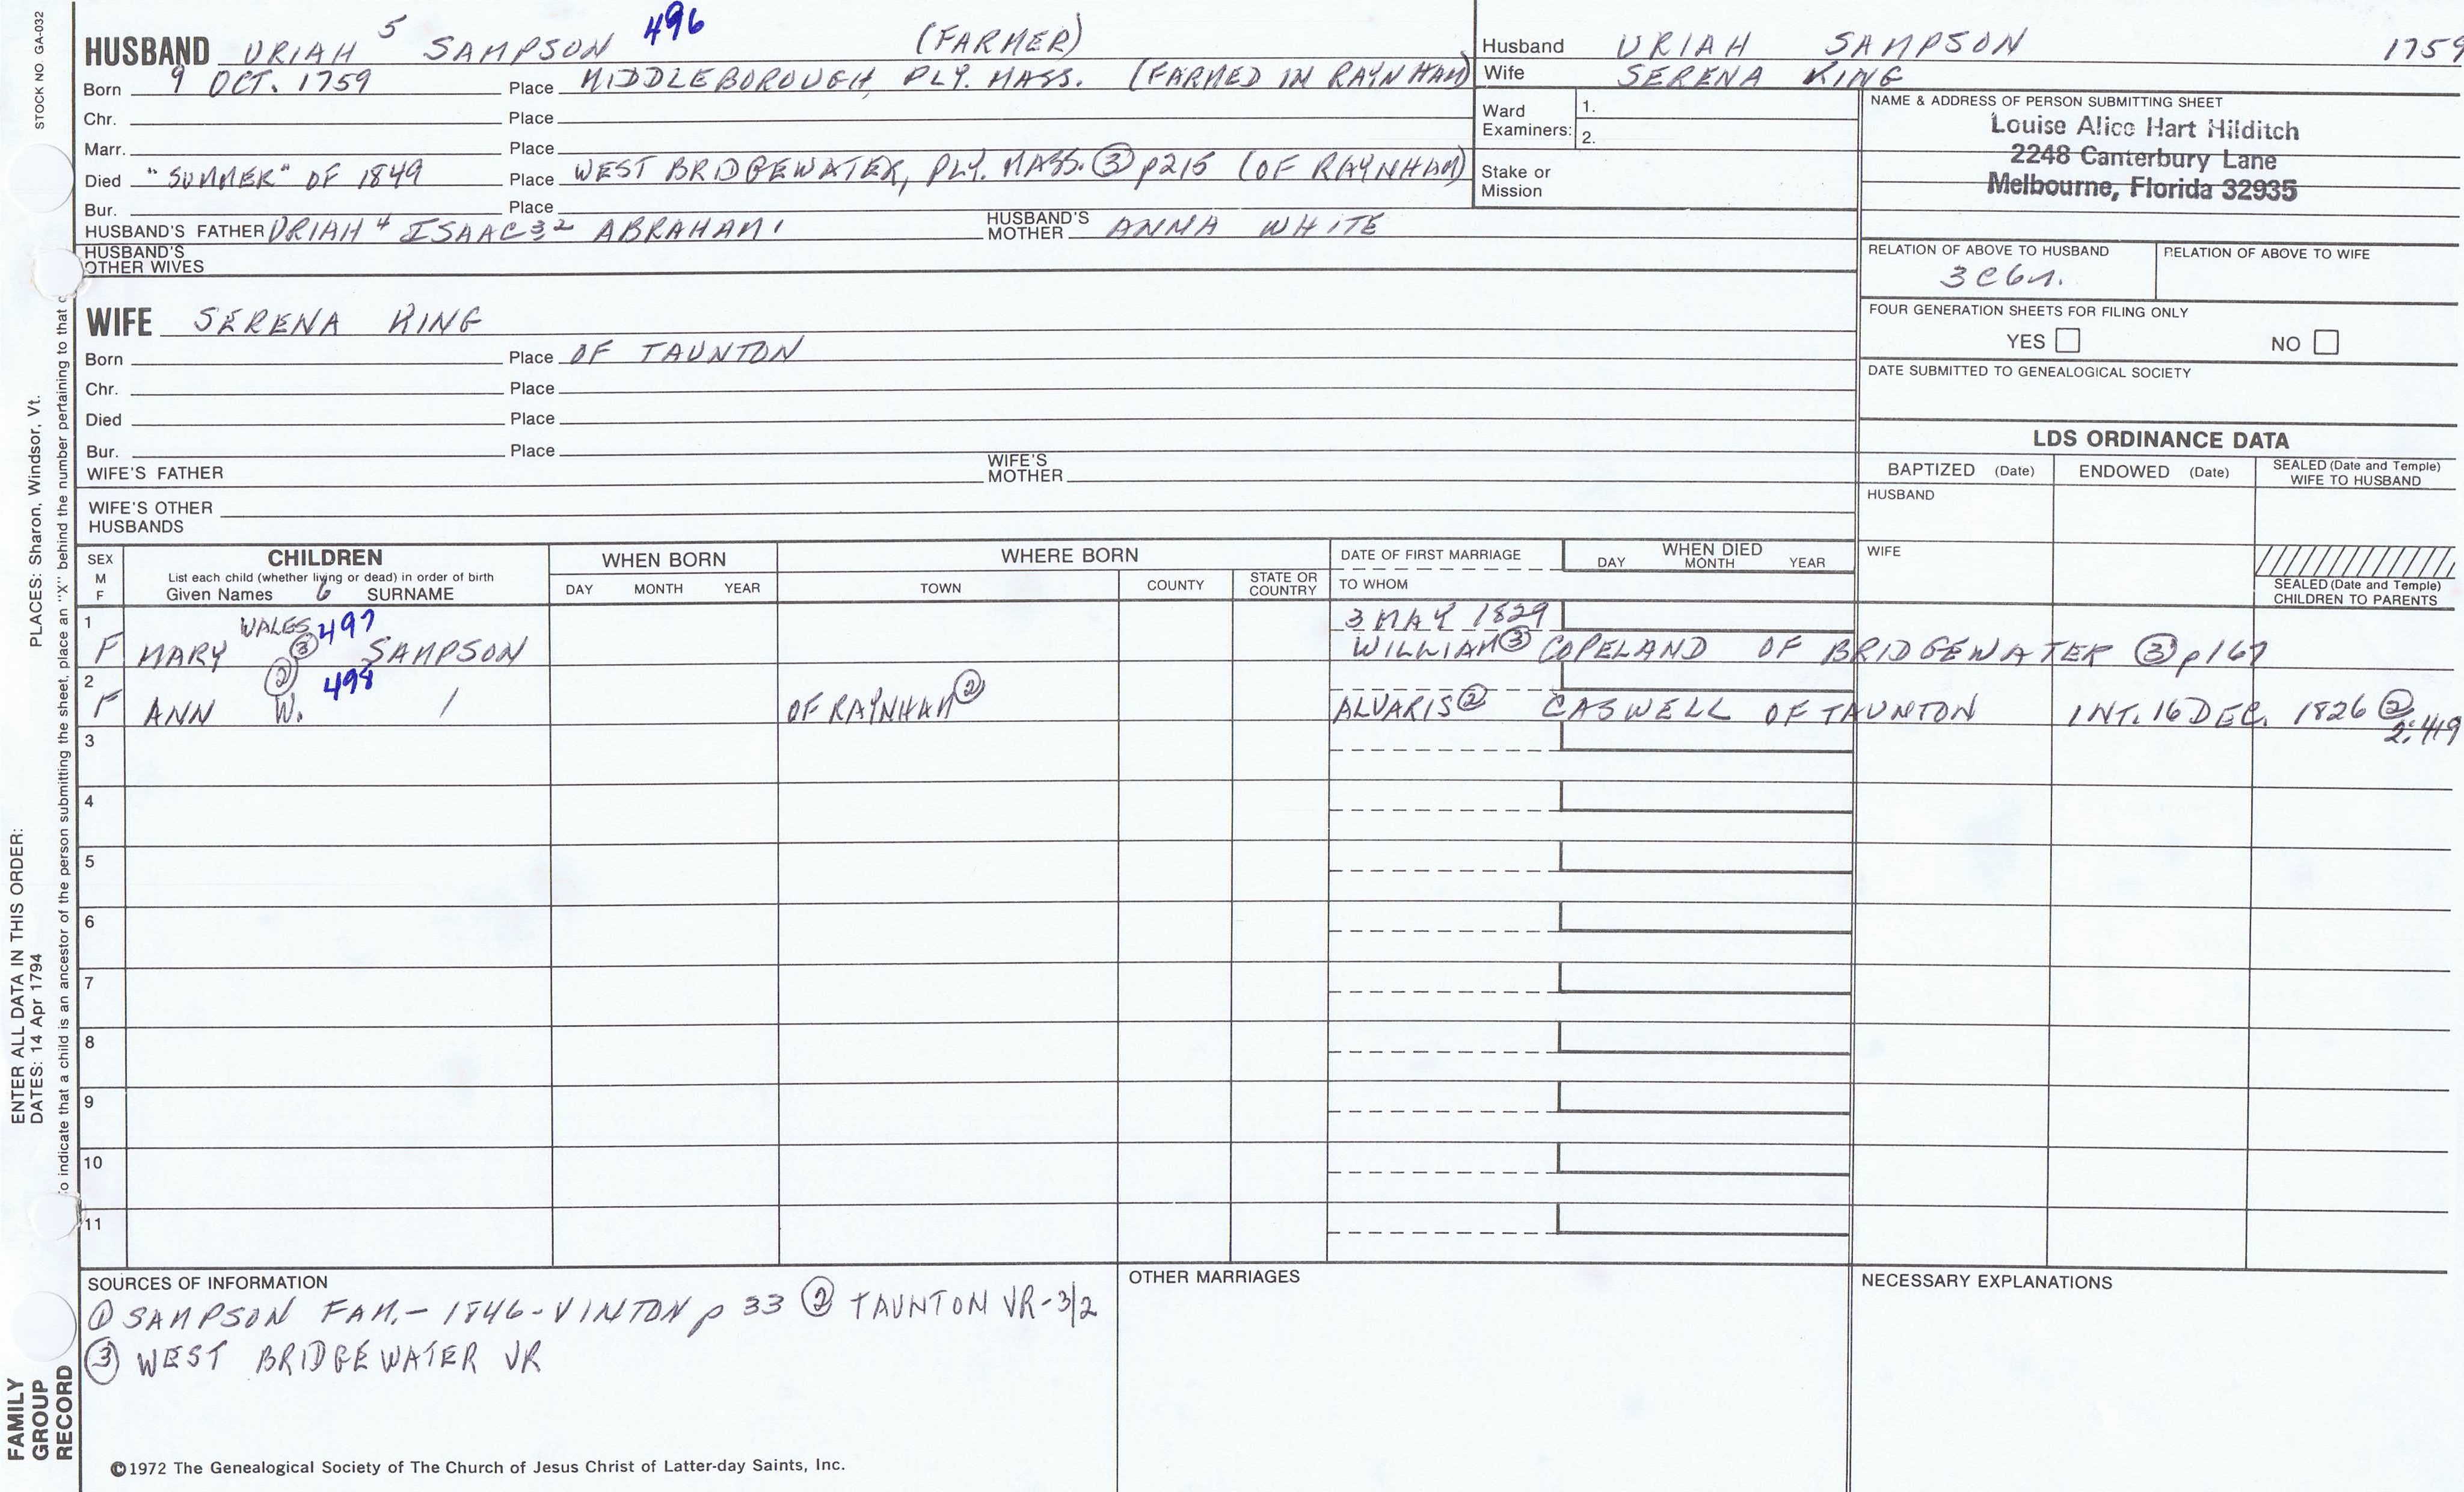 STOCK NO. GA-032
HUSBAND URIAH 5 SAMPSON 496 (FARMER)
Born 9 OCT. 1759 Place MIDDLEBOROUGH, PLY. MASS. (FARMED IN RAYNHAM)
Chr. Place
Marr. Place
Died "SUMMER" OF 1849 Place WEST BRIDGEWATER, PLY. MASS. ③ p215 (OF RAYNHAM)
Bur. Place
HUSBAND'S FATHER URIAH 4 ISAAC 3 2 ABRAHAM 1 HUSBAND'S MOTHER ANNA WHITE
HUSBAND'S OTHER WIVES
Husband URIAH SAMPSON 1759
Wife SERENA KING
Ward Examiners: 1.
2.
Stake or Mission
NAME & ADDRESS OF PERSON SUBMITTING SHEET
Louise Alice Hart Hilditch
2248 Canterbury Lane
Melbourne, Florida 32935
RELATION OF ABOVE TO HUSBAND RELATION OF ABOVE TO WIFE
3C6R.
FOUR GENERATION SHEETS FOR FILING ONLY
YES NO
DATE SUBMITTED TO GENEALOGICAL SOCIETY
WIFE SERENA KING
Born Place OF TAUNTON
Chr. Place
Died Place
Bur. Place
WIFE'S FATHER WIFE'S MOTHER
WIFE'S OTHER HUSBANDS
LDS ORDINANCE DATA
BAPTIZED (Date) ENDOWED (Date) SEALED (Date and Temple) WIFE TO HUSBAND
HUSBAND
WIFE
SEALED (Date and Temple) CHILDREN TO PARENTS
SEX M F
CHILDREN
List each child (whether living or dead) in order of birth
Given Names 6 SURNAME
WHEN BORN
DAY MONTH YEAR
WHERE BORN
TOWN COUNTY STATE OR COUNTRY
DATE OF FIRST MARRIAGE
TO WHOM
WHEN DIED
DAY MONTH YEAR
1 WALES 497 3 MAY 1829
F MARY ③ SAMPSON WILLIAM ③ COPELAND OF BRIDGEWATER ③ p167
2 ② 498
F ANN W. / OF RAYNHAM ② ALVARIS ② CASWELL OF TAUNTON INT. 16 DEC. 1826 ②
2:419
3
4
5
6
7
8
9
10
11
SOURCES OF INFORMATION
① SAMPSON FAM. - 1846 - VINTON p 33 ② TAUNTON VR - 3/2
③ WEST BRIDGEWATER VR
OTHER MARRIAGES
NECESSARY EXPLANATIONS
©1972 The Genealogical Society of The Church of Jesus Christ of Latter-day Saints, Inc.
PLACES: Sharon, Windsor, Vt.
ENTER ALL DATA IN THIS ORDER:
DATES: 14 Apr 1794
o indicate that a child is an ancestor of the person submitting the sheet, place an "X" behind the number pertaining to that c
FAMILY
GROUP
RECORD